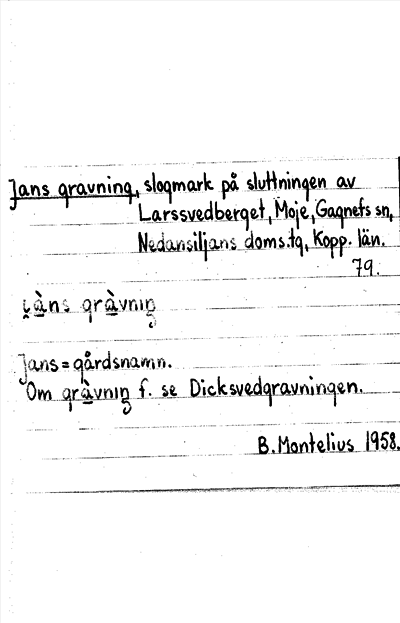 Jans gravning, slogmark på sluttningen av
Larssvedberget, Moje, Gagnefs sn,
Nedansiljans doms.tg, Kopp. län.
79.
i̯ȧ̠̀ns grȧ̠̀vnıŋ
Jans = gårdsnamn.
Om grȧ̠̀vnıŋ f. se Dicksvedgravningen.
B. Montelius 1958.